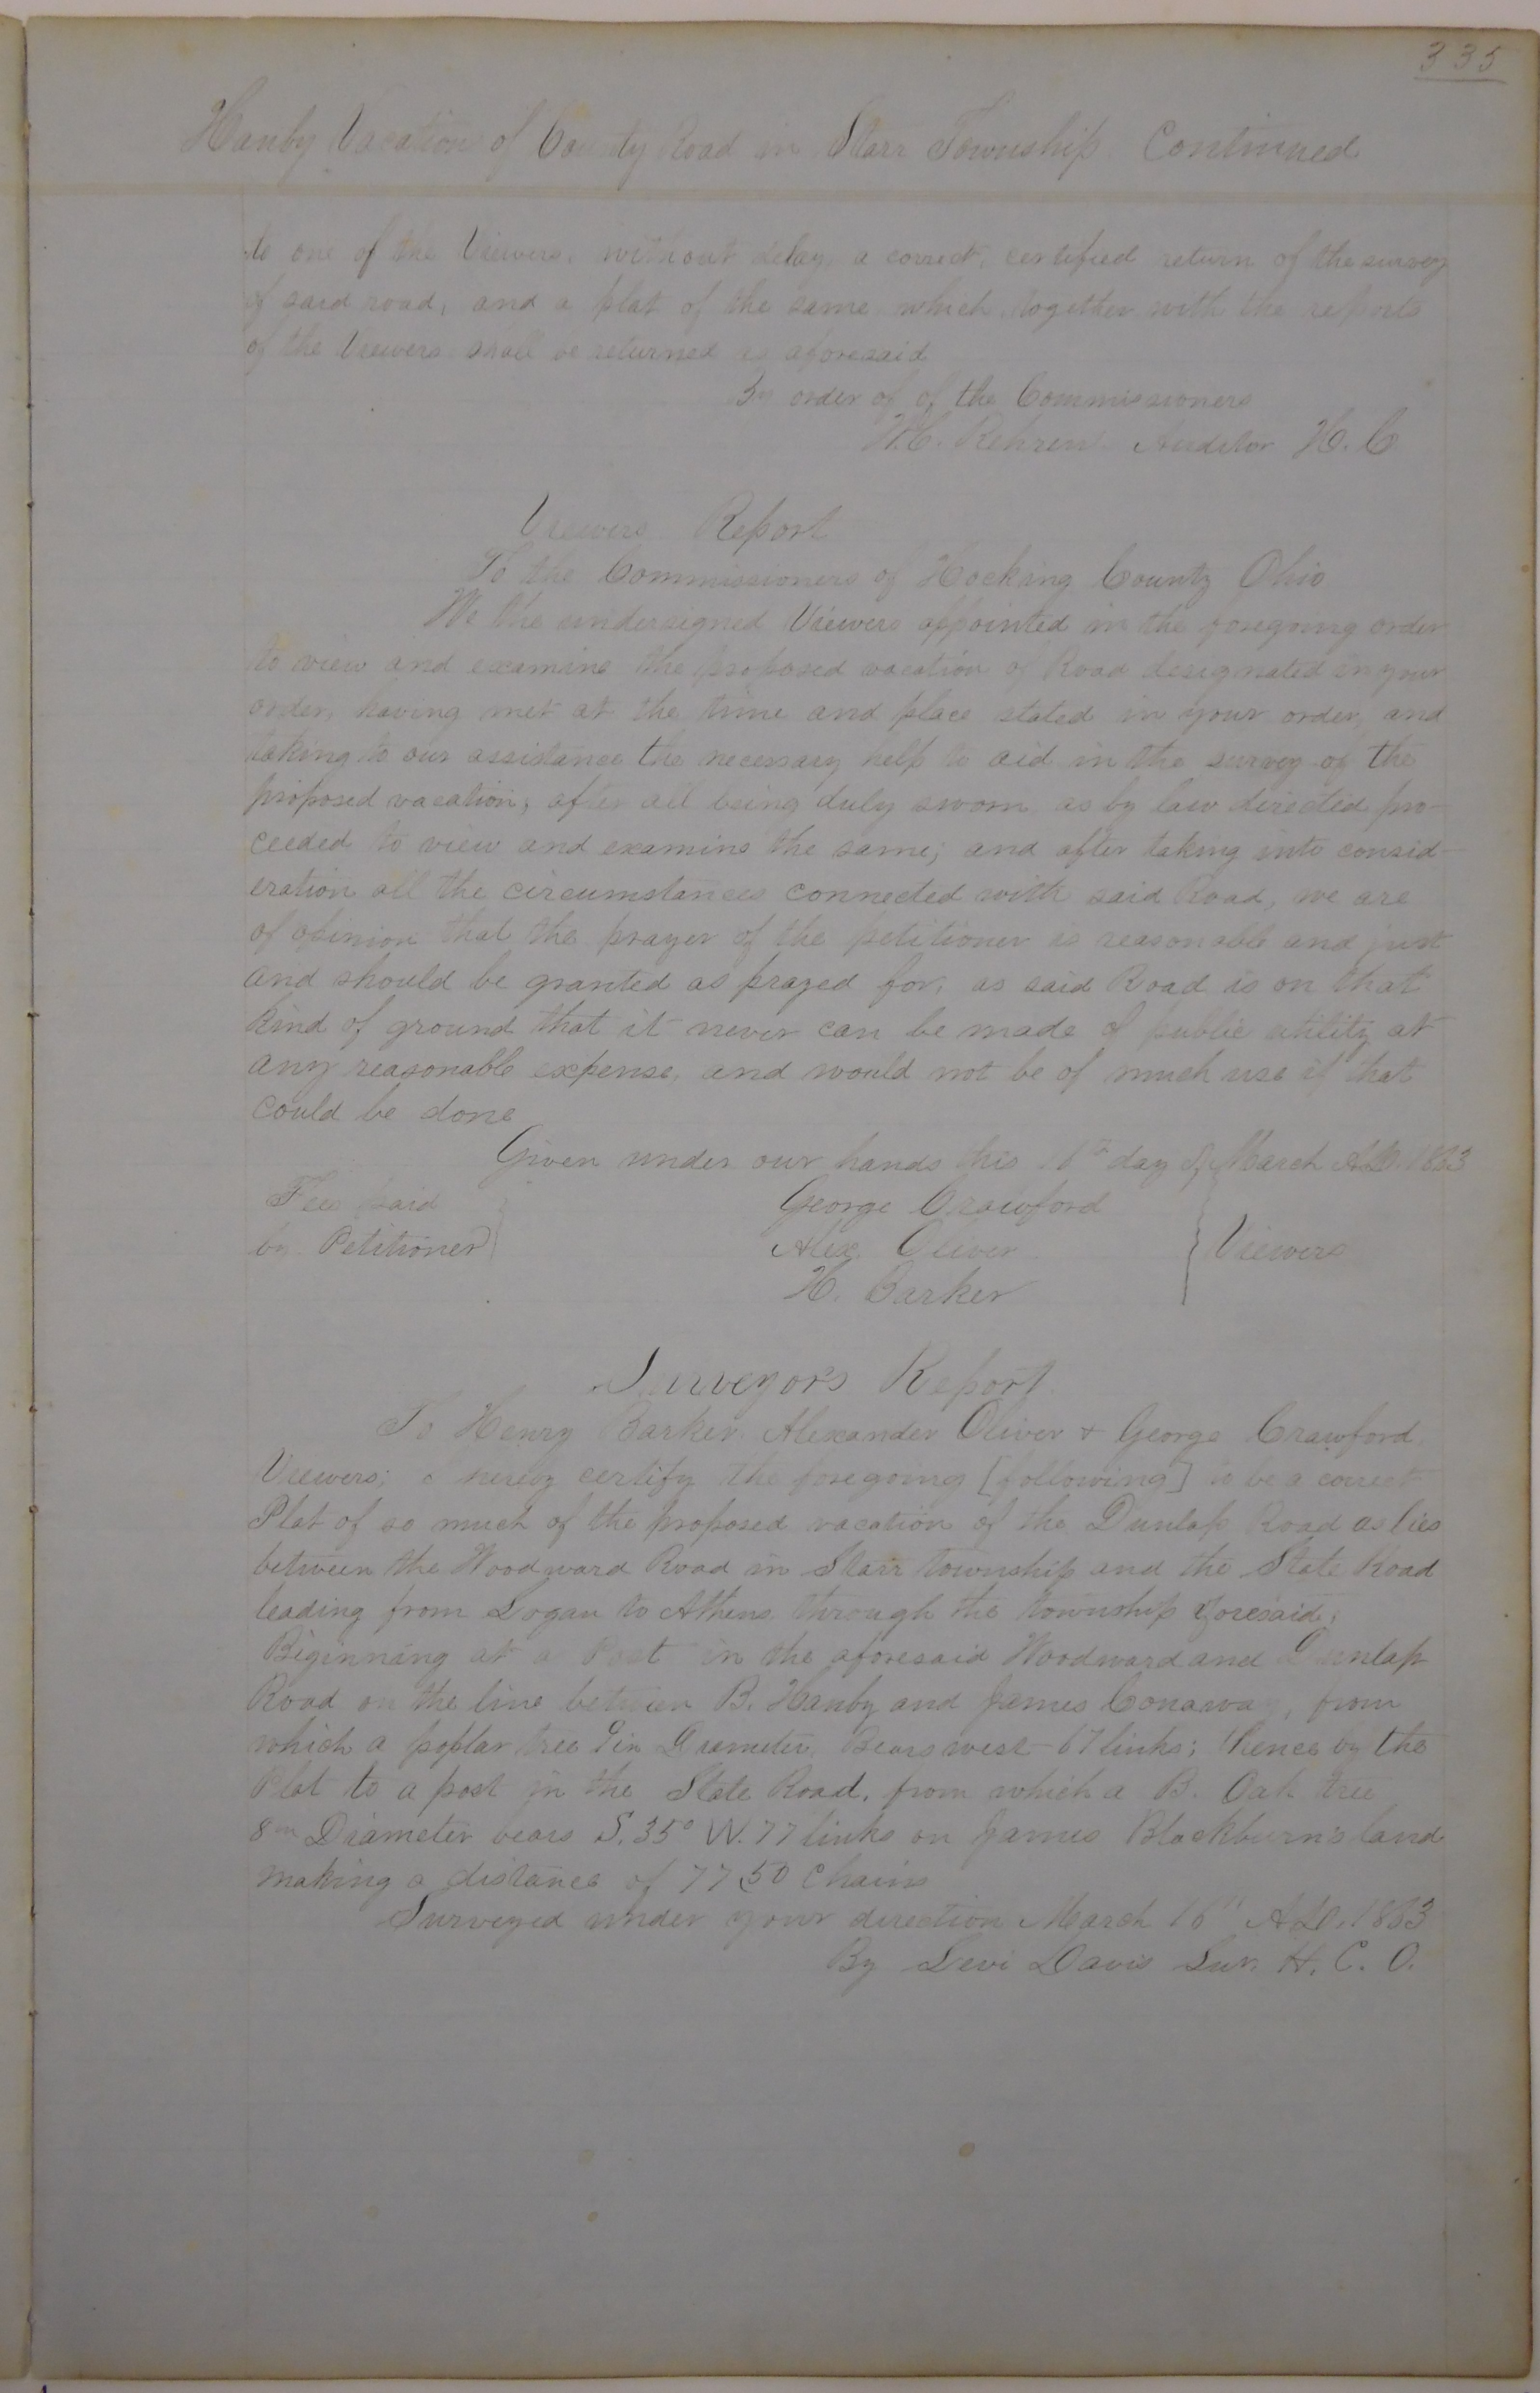 335
Hanby Vacation of County Road in Starr Township. Continued
to one of the Viewers, without delay, a correct, certified return of the survey
of said road, and a plat of the same, which, together with the reports
of the Viewers shall be returned as aforesaid
By order of of the Commissioners
Auditor H. C
Viewers Report
To the Commissioners of Hocking County Ohio
We the undersigned Viewers appointed in the foregoing order
to view and examine the proposed vacation of Road designated in your
order, having met at the time and place stated in your order, and
taking to our assistance the necessary help to aid in the survey of the
proposed vacation, after all being duly sworn as by law directed pro-
ceeded to view and examine the same; and after taking into consid-
eration all the circumstances connected with said Road, we are
of opinion that the prayer of the petitioner is reasonable and just
and should be granted as prayed for, as said Road is on that
kind of ground that it never can be made of public utility at
any reasonable expense, and would not be of much use if that
could be done
Given under our hands this 16th day of March A.D. 1863
Fees paid
by Petitioner
George Crawford
Alex. Oliver
H. Barker
Viewers
Surveyors Report
To Henry Barker, Alexander Oliver + George Crawford,
Viewers; I hereby certify the foregoing [following] to be a correct
Plat of so much of the proposed vacation of the Dunlap Road as lies
between the Woodward Road in Starr township and the State Road
leading from Logan to Athens through the township foresaid,
Beginning at a Post in the aforesaid Woodward and Dunlap
Road on the line between B. Hanby and James Conaway, from
which a poplar tree 9 in Diameter Bears west 67 links; thence by the
Plat to a post in the State Road, from which a B. Oak tree
8 in Diameter bears S. 35° W. 77 links on James Blackburn's land
making a distance of 77.50 Chains
Surveyed under your direction March 16th A.D. 1863
By Levi Davis Sur. H. C. O.